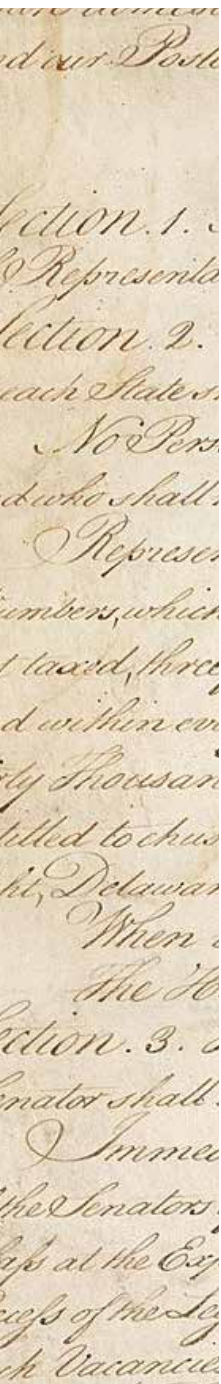 d our Poste
ection. 1.
& Representa
ection. 2.
each State s
No Pers
d who shall
Represen
umbers, which
t taxed, three
d within eve
rty Thousan
titled to chus
ht, Delawar
When
the Ho
ection. 3.
enator shall
Immed
the Senators
laſs at the Exp
eceſs of the Leg
ch Vacancie